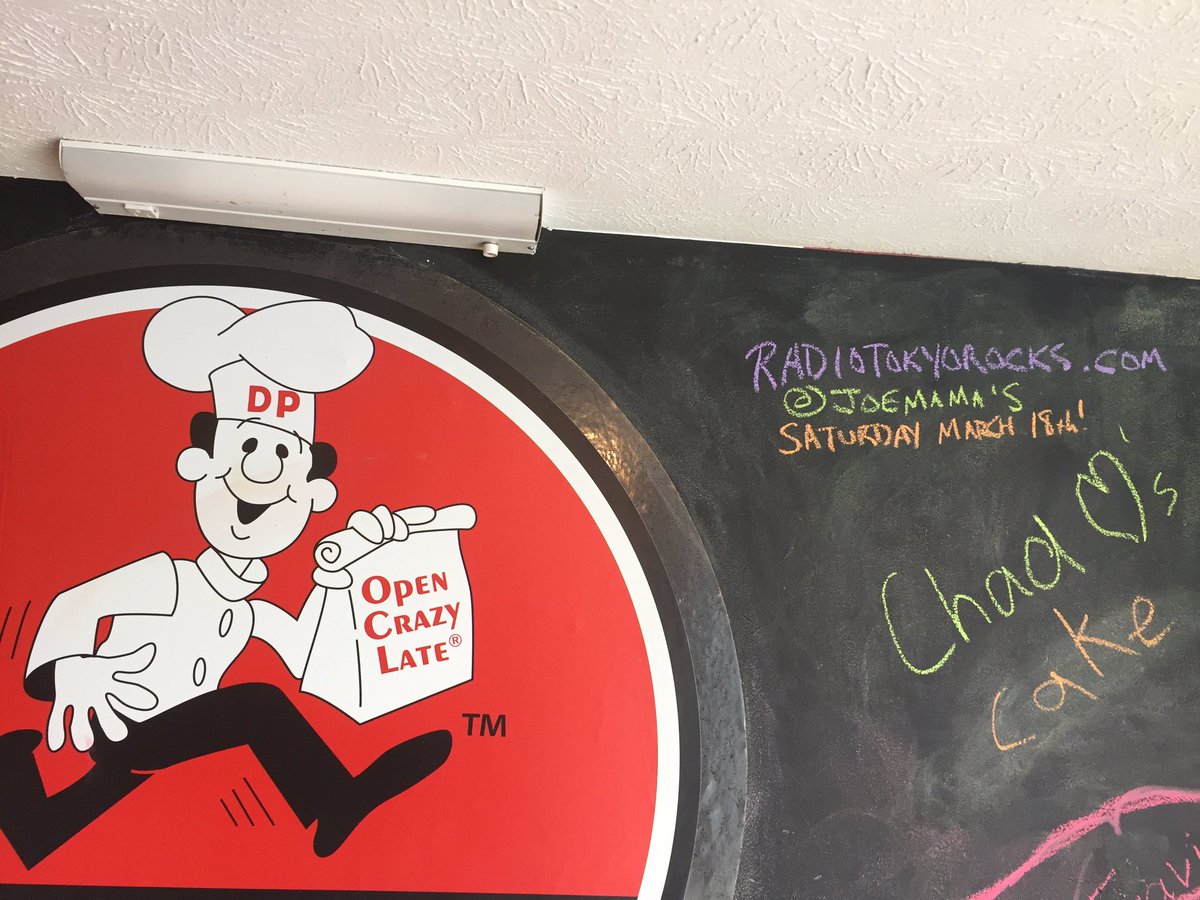 DP
OPEN
CRAZY
LATE®
TM
RADIOTOKYOROCKS.COM
@JOEMAMA'S
SATURDAY MARCH 18th!
Chad ♡'s
cake